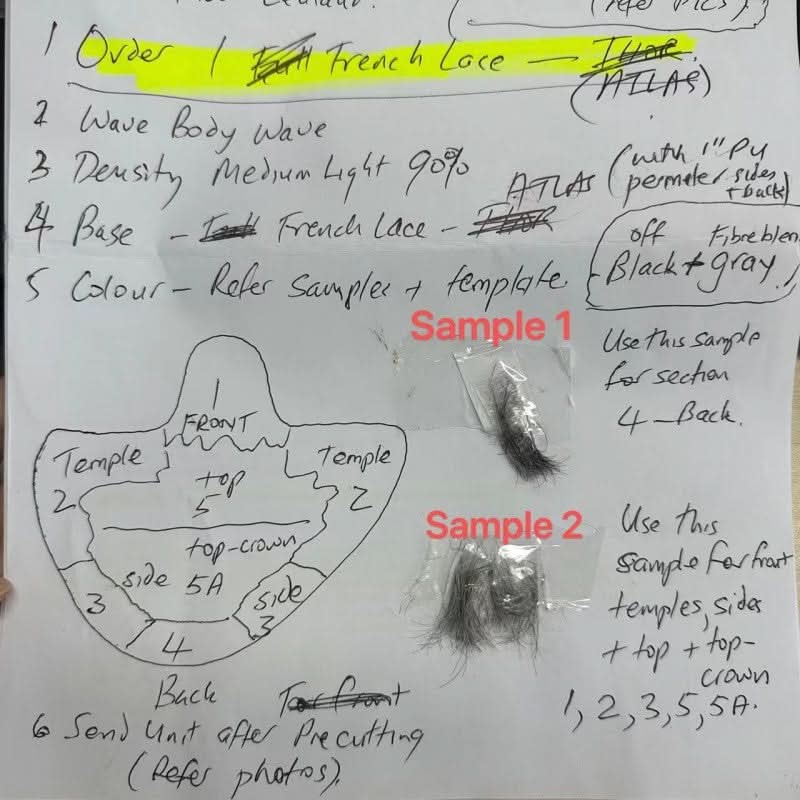 (refer pics).
1 Order 1 French Lace — (ATLAS)
2 Wave Body Wave
3 Density Medium Light 90%
4 Base - French Lace - ATLAS (with 1" PU
permeter sides
+ back)
5 Colour - Refer Samples + template.
off Fibreblen
Black + gray.
Sample 1
Use this sample
for section
4 - Back.
1
FRONT
Temple
2
Temple
2
top
5
top-crown
5A
side
3
side
3
4
Back
Sample 2
Use this
sample for front
temples, sides
+ top + top-
crown
1, 2, 3, 5, 5A.
6 Send Unit after Precutting
(Refer photos).